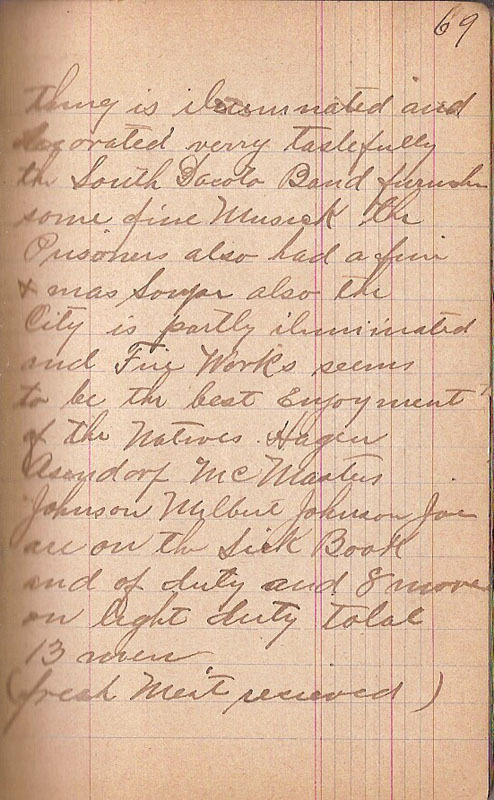 69
thing is iluminated and
decorated verry tastefully
the South Dacota Band furnish
some fine Musick the
Prisoners also had a fine
X mas Souper also the
City is partly iluminated
and Fire Works seems
to be the best Enjoyment
of the Natives. Hagen
Asendorf McMasters
Johnson Wilbert Johnson Joe
are on the Sick Book
and of duty and 8 more
on light duty total
13 men
(fresh Meat recieved)